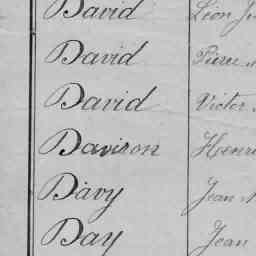 David Léon
David Pierre
David Victor
Daviron Henri
Dávy Jean
Day Jean